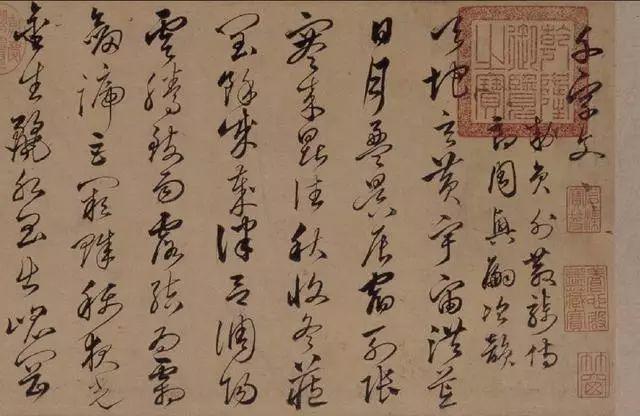 千字文
敕員外散騎侍
郎周興嗣次韻
天地玄黃宇宙洪荒
日月盈昃辰宿列張
寒來暑往秋收冬藏
閏餘成歲律呂調陽
雲騰致雨露結為霜
劍號巨闕珠稱夜光
金生麗水玉出崑岡
乾隆御覽之寶